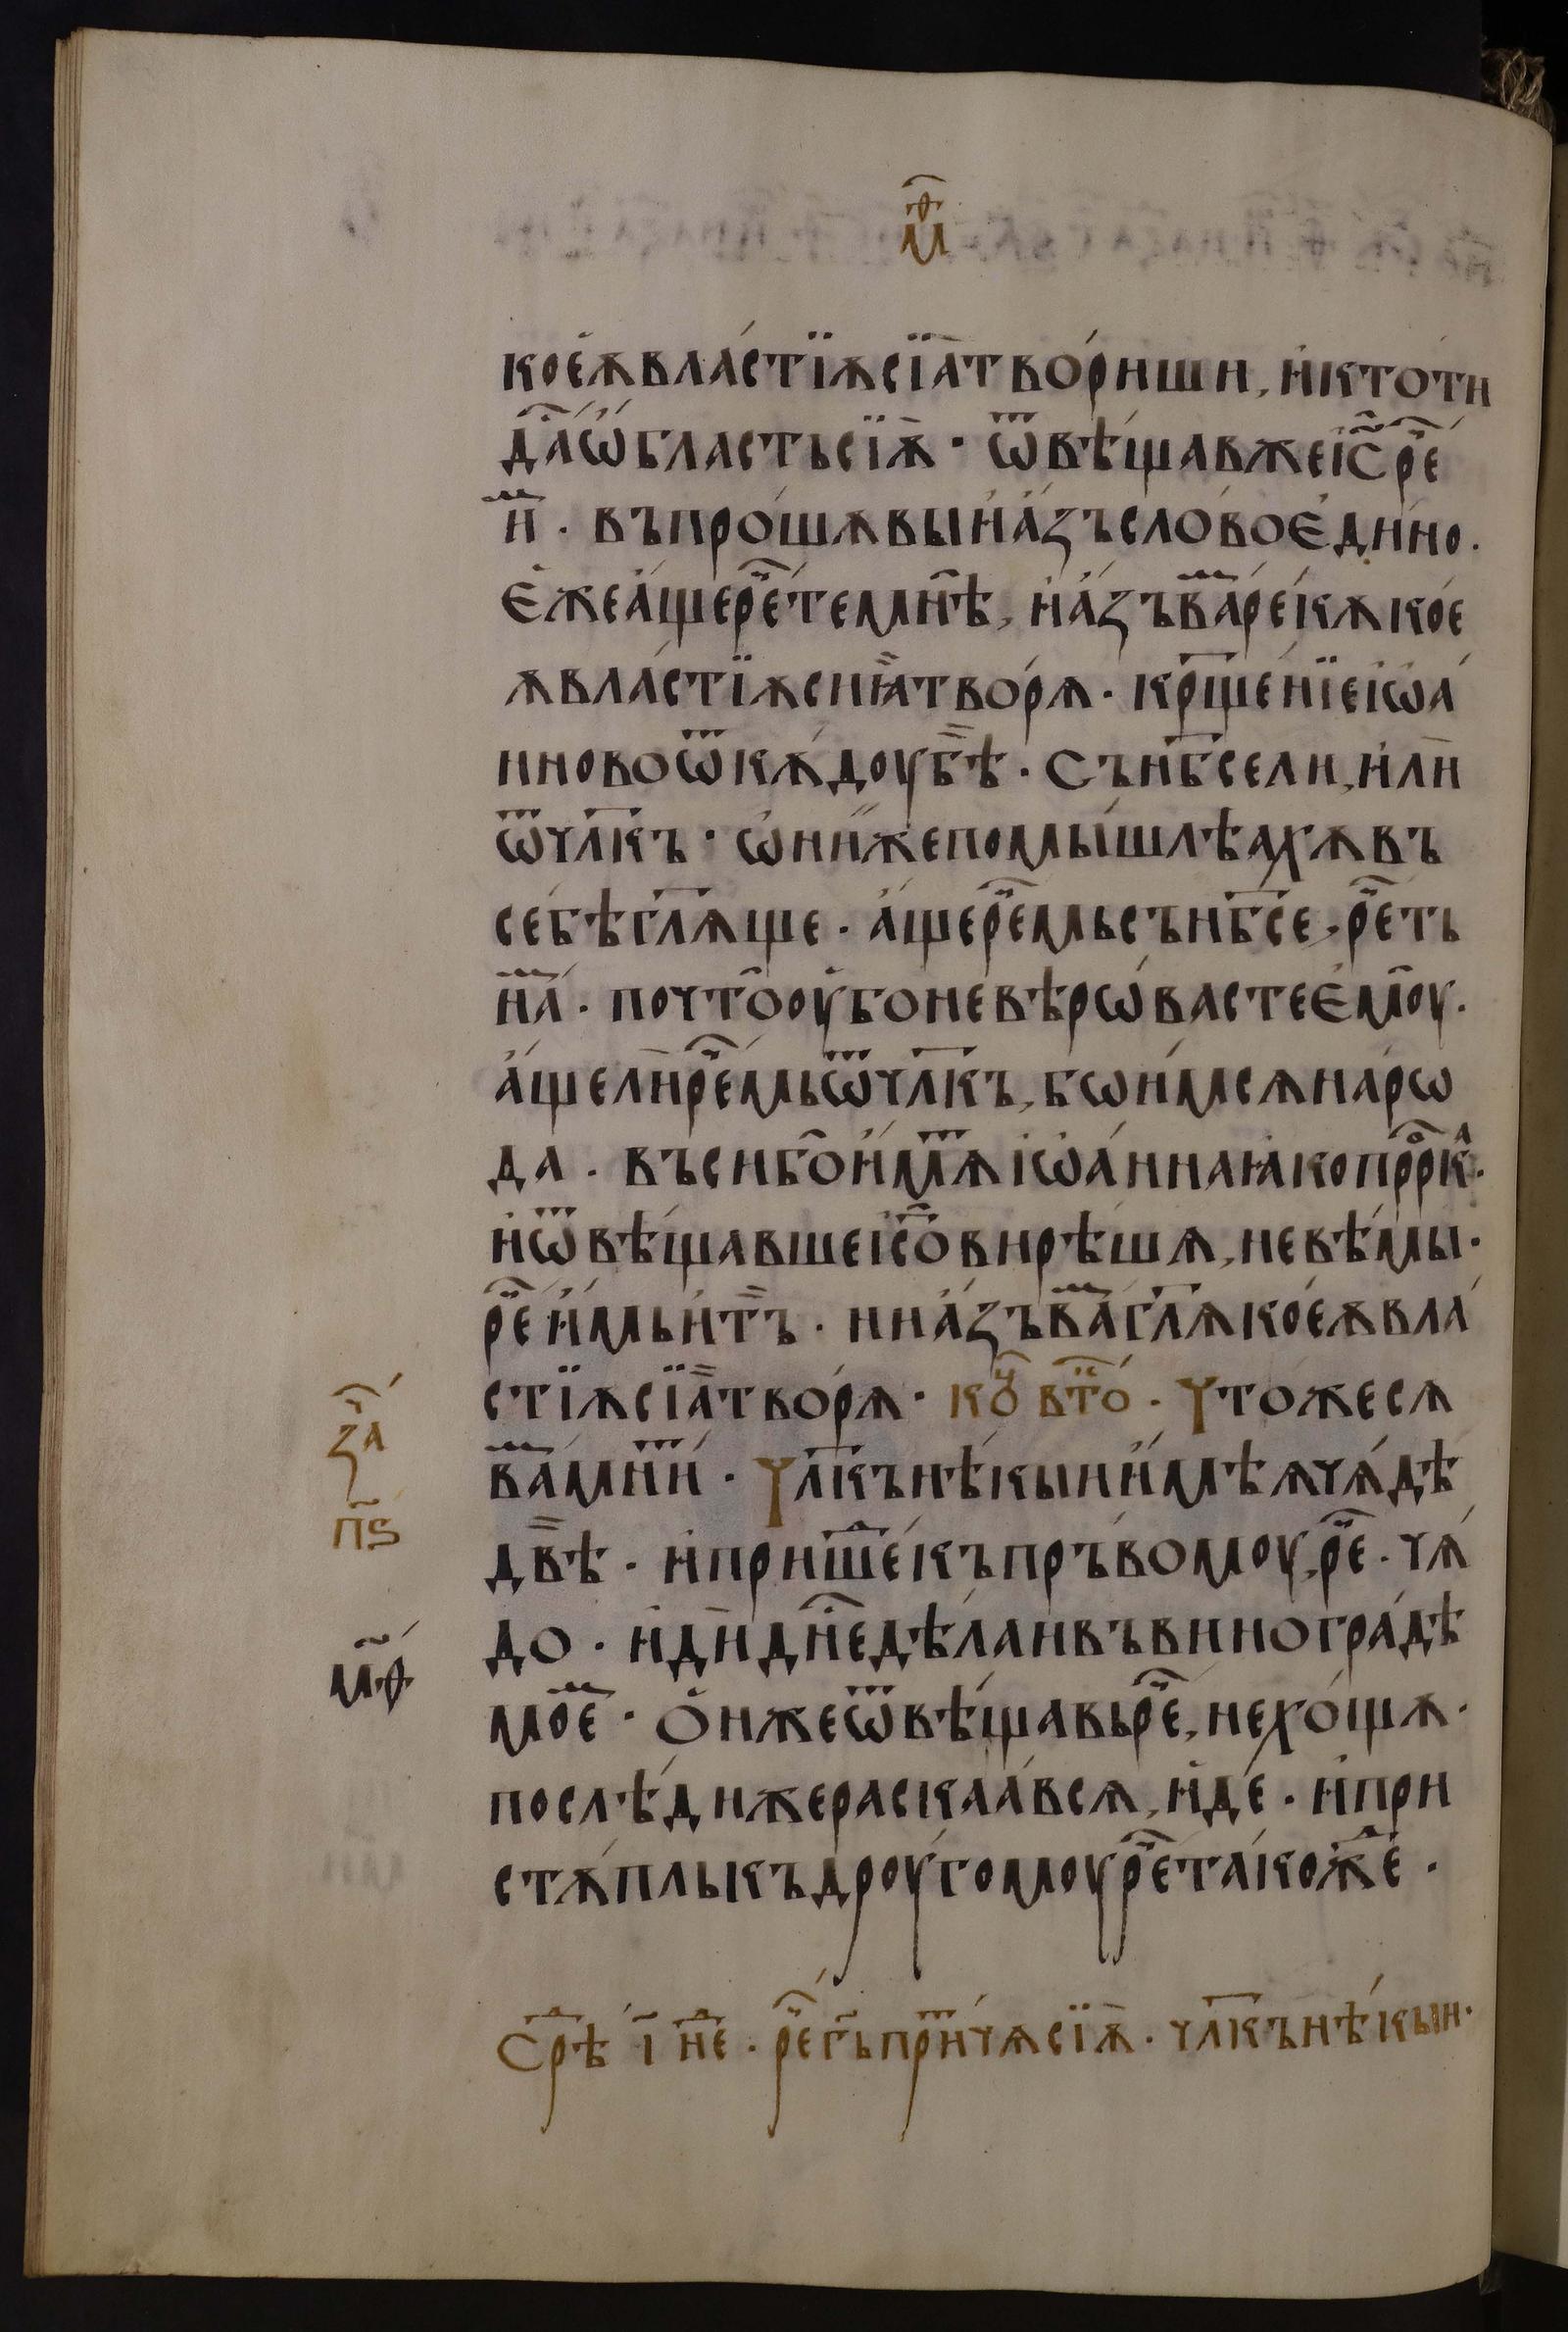 м҃ѳ
кое́ѫвла́стїѫсїа̀тво́риши, и҆кто́ти
да҇́ѡ҆́бластьсїѫ̀ · ѿвѣ́щавжеі҆с҃ре҇́
и҇м · въпро́шѫвыи҆а҆́зъсло́воє҆ди́но ·
є҆́жеа҆́щере҇́темн҄ѣ, и҆а҆́зъва҇мре́кѫко́е
ѫвла́стїѫсиꙗ̏тво́рѧ · кр҃ще́нїеі҆ѡ҆а́
нновоѿкѫ́доуб̏ѣ · Сън҃бсели, и҆лѝ
ѿчл҃къ · ѡ҆ни́жепомы́шлѣахѫвъ
себѣ́гл҃ѫще · а҆́щере҇́мьсън҃бсе́, ре҇́ть
на҇́м · почто҄оу҆́боневѣ́рѡвастеє҆м҄оу ·
а҆́щелѝре҇́мьѿчл҃къ, бѡи́мсѧнарѡ́
да · въсиб҄ои҆́мѫ҇ті҆ѡ҆а́ннаꙗ҆копр҇ро́ка ·
и҆ѿвѣ́щавшеі҆с҃о́вирѣ́шѧ, невѣ́мы ·
ре҇́и҆́мьи҆т̏ъ · ииа҆́зъва҇мгл҃ѫко́еѫвла́
стїѫсїа̏тво́рѧ · кꙋ҇ в҇то́ · Что́жесѧ
ва҇́ммни҇́т · Чл҃кънѣ́кыии҆мѣ́ѧчѧ́дѣ
дв̏ѣ · и҆прише҇дкъпръ́вомоу, ре҇́ · чѧ́
до · и҆дѝдн҇едѣ́лаивъвиногра́дѣ
мое҇м · Ѻ҆́нжеѿвѣ́щавьре҇́, нехо́щѫ ·
послѣ́дижераскаа́всѧ, и҆де́ · и҆при
стѫ́пльк̾ъдроу́гомоуре҇́та́коже҇́ ·
за҇́
п҃ѕ
м҃ѳ
Ср҇ѣ і҃ не҇д · ре҇́г҃ьпри҇́тчѫсїѫ̀ · чл҃кънѣ́кыи ·